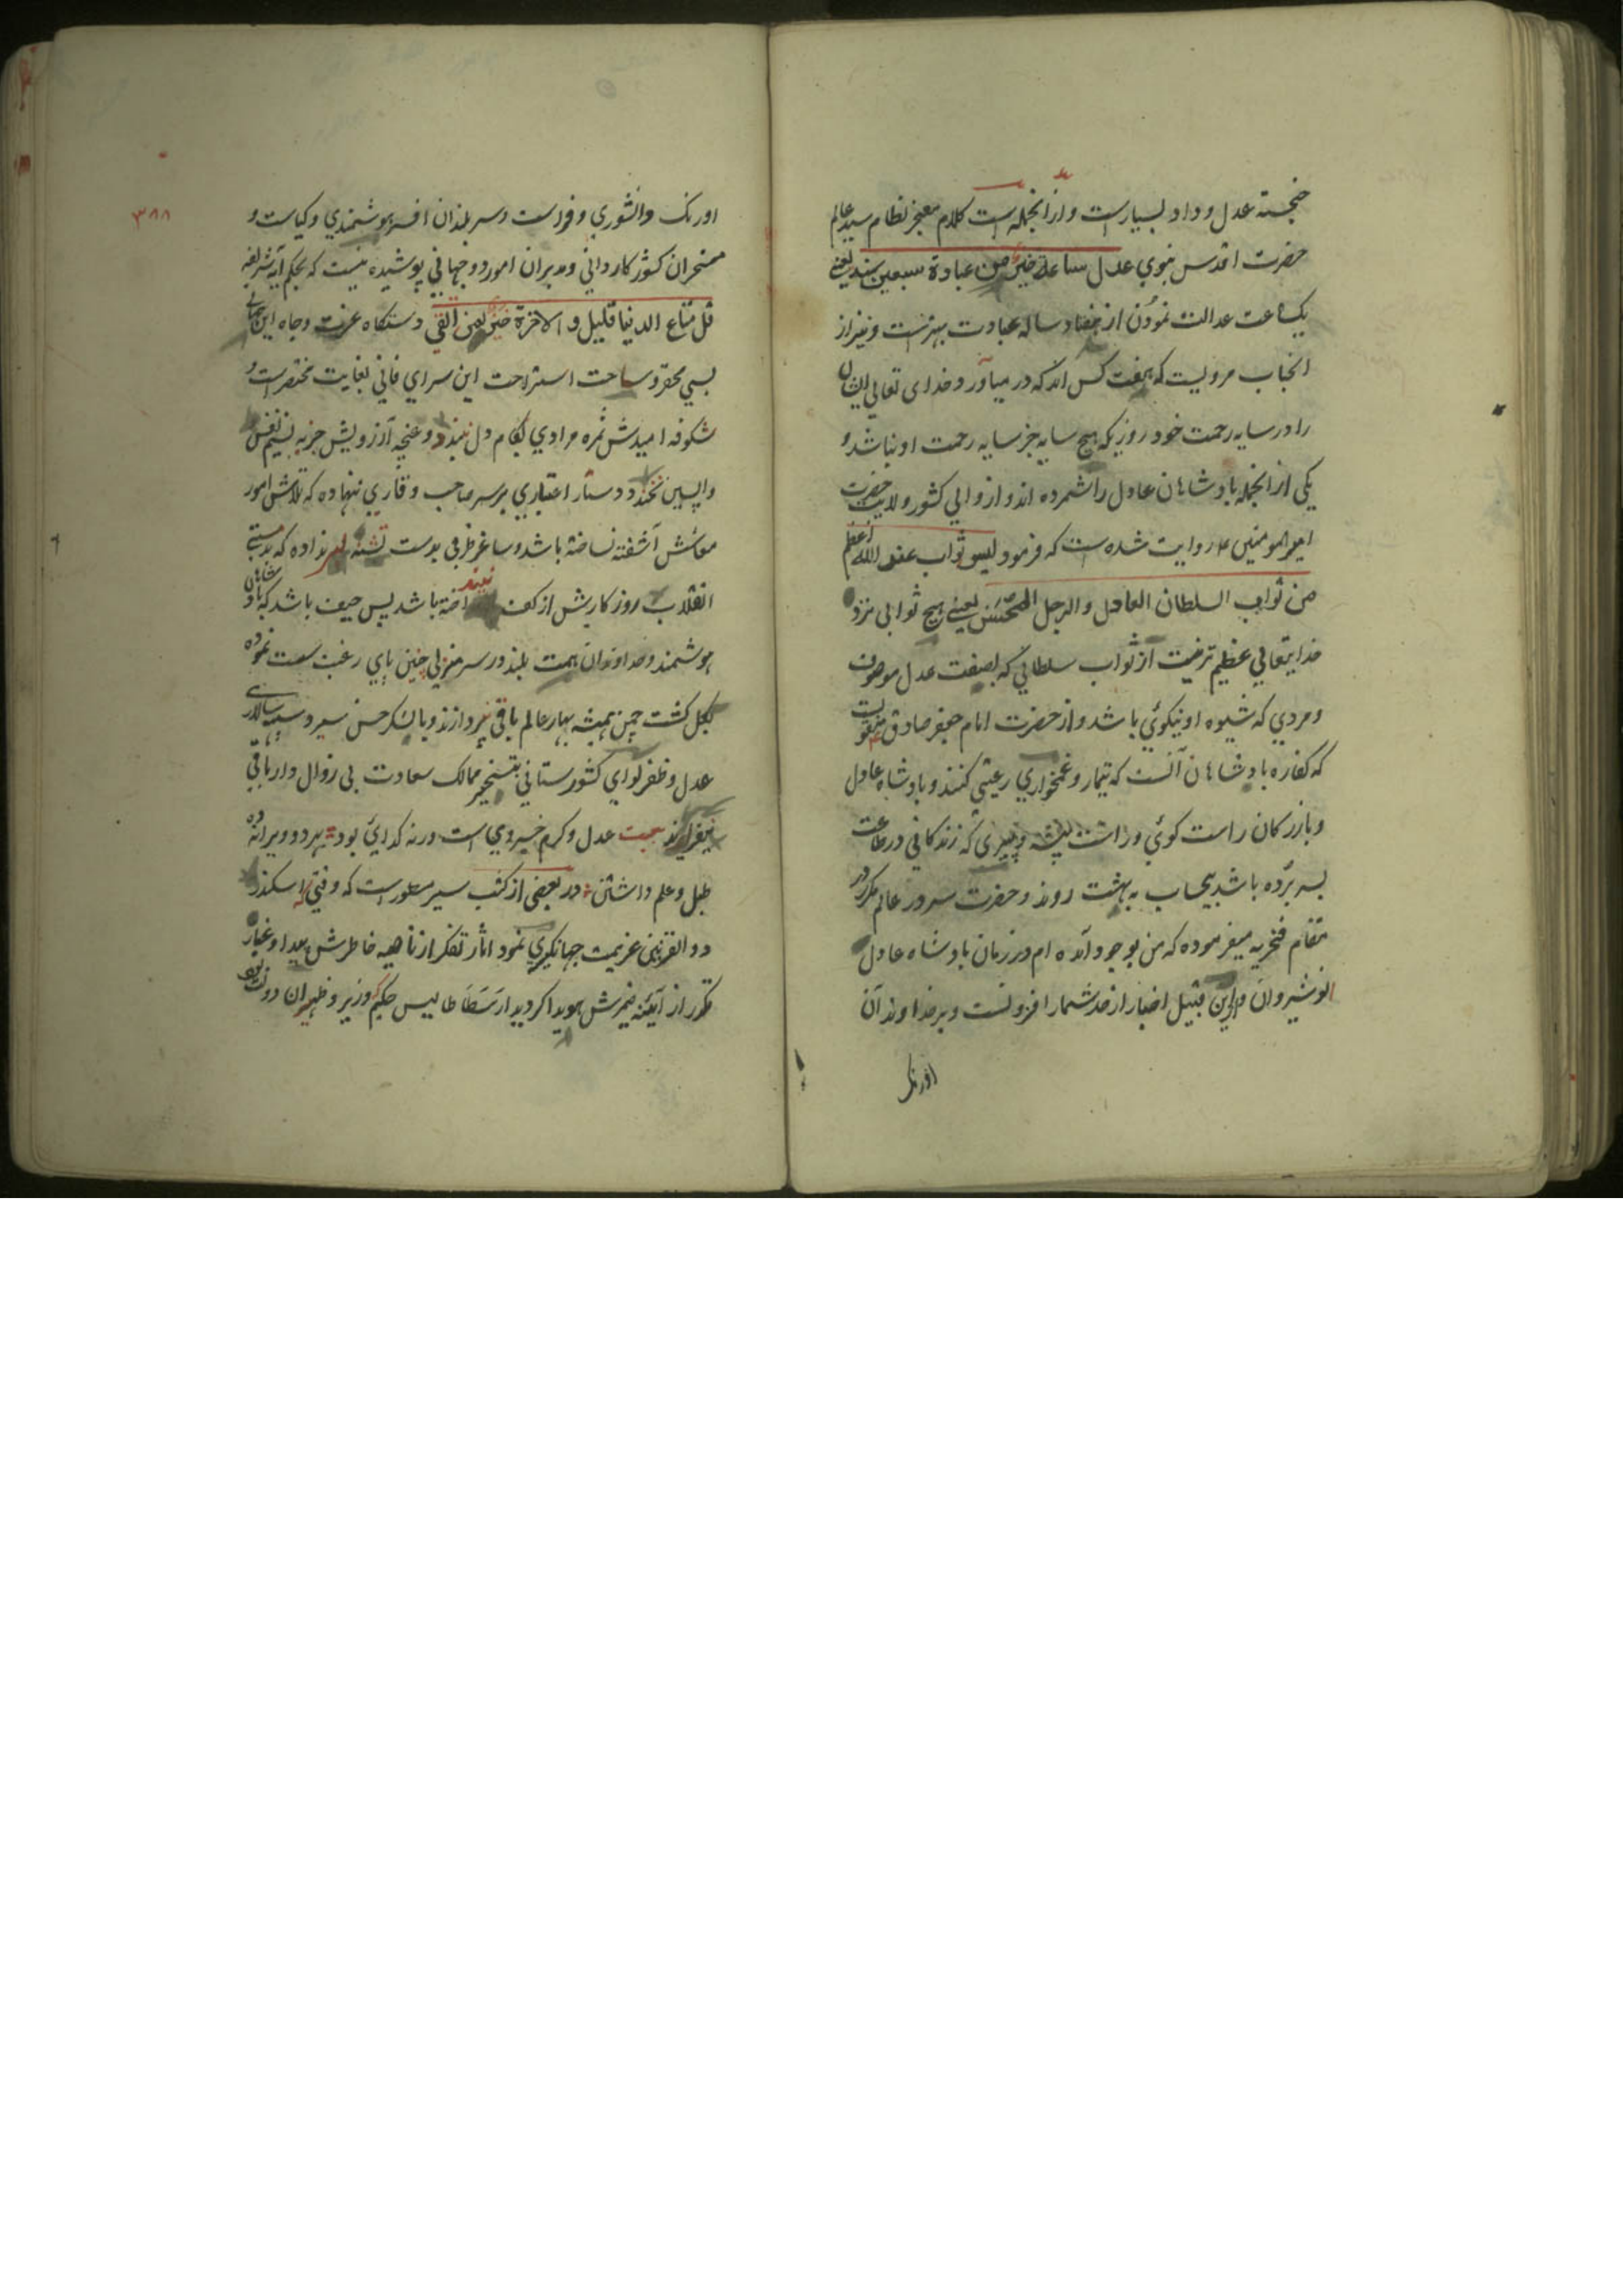 خجسته عدل و داد بسیار است و از انجمله است کلام معجز نظام سید عالم
حضرت اقدس نبوي عدل ساعة خیر من عبادة سبعین سنة یعنے
یکساعت عدالت نمودن از هفتاد ساله عبادت بهتر است و نیز از
انجناب مرویست که هفت کس اند که در میآورد خدای تعالی ایشان
را در سایه رحمت خود روزیکه هیچ سایه جز سایه رحمت او نباشد و
یکی از انجمله بادشاهان عادل را شمرده اند و از والي کشور ولایت حضرت
امیر المومنین ع روایت شده است که فرمود لیس ثواب عند الله اعظم
من ثواب السلطان العادل و الرجل المحسن یعنے هیچ ثوابی نزد
خدایتعالي عظیم تر نیست از ثواب سلطاني که بصفت عدل موصوف
و مردي که شیوه او نیکوئي باشد و از حضرت امام جعفر صادق منقولست
که کفاره بادشاهان آنست که تیمار و غمخواري رعیتی کنند و بادشاه عادل
و بازرکان راست کوئي و راست پیشه و پیری که زندکاني در طاعت
بسر برده باشد بیحساب به بهشت روند و حضرت سرور عالم مکرر در
مقام فخریه میفرموده که من بوجود آمده ام در زمان بادشاه عادل
انوشیروان و این قبیل اخبار از حد شمار افزونست و بر خداوندان
اورنک
۳۸۸
اورنک دانشوري و فراست و سربلندان افسر هوشمندي و کیاست و
مسخران کشور کارداني و مدبران امور دوجهاني پوشیده نیست که بحکم آیه شریفه
قل متاع الدنیا قلیل و الاخرة خیر لمن اتقي دستکاه عزت و جاه این جهان
بسي محقر و ساحت استراحت این سراي فاني بغایت مختصر است و
شکوفه امیدش ثمره مرادي بکام دل نبندد و غنچه آرزویش جز به نسیم نفس
واپسین نخندد دستار اعتباري بر سر صاحب وقاري ننهاده که تلاش امور
معاش آشفته نساخته باشد و ساغر ظرفي بدست تشنه لبی نداده که بدمستے
انقلاب روزکارش از کف نینداخته باشد پس حیف باشد که بادشاهان
هوشمند و خداوندان همت بلند در سر منزلی چنین پاي رغبت سست نموده
بکل کشت چمن همیشه بهار عالم باقي نپردازند و با لشکر حسن سیر و سپه سالاري
عدل و ظفر لواي کشورستاني بتسخیر ممالک سعادت بی زوال دار باقي
نیفرازند بیت عدل و کرم خسروي است ورنه کدائي بود بهر دو ویرانه ده
طبل و علم داشتن در بعضی از کتب سیر مسطور است که وقتی که اسکندر
ذوالقرنین عزیمت جهانکیري نمود اثار تفکر از ناصیه خاطرش پیدا و غبار
تکدر از آیئنه ضمیرش هویدا کردید ارسطاطالیس حکیم که وزیر و ظهیر ان دولت بود